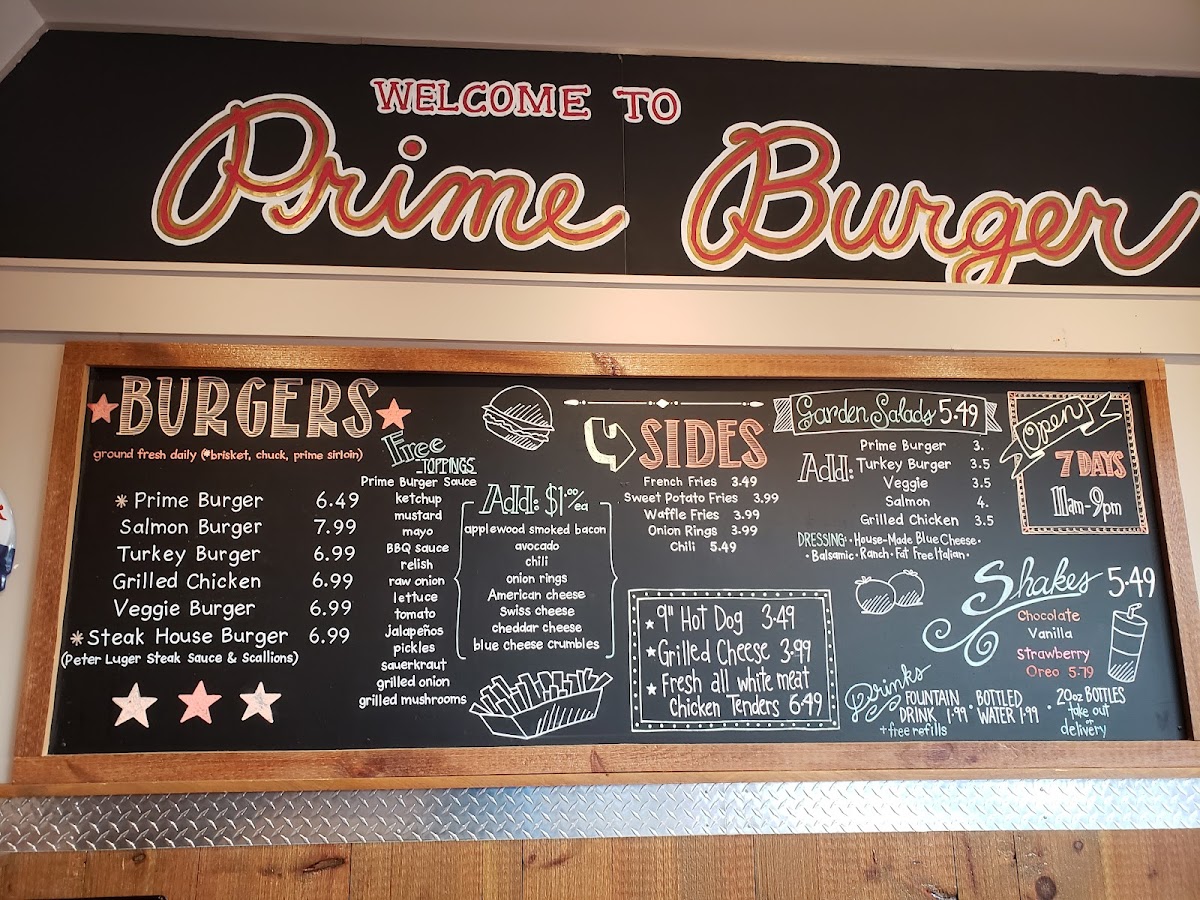 WELCOME TO
Prime Burger
BURGERS
ground fresh daily (*brisket, chuck, prime sirloin)
* Prime Burger 6.49
Salmon Burger 7.99
Turkey Burger 6.99
Grilled Chicken 6.99
Veggie Burger 6.99
* Steak House Burger 6.99
(Peter Luger Steak Sauce & Scallions)
Free
TOPPINGS
Prime Burger Sauce
ketchup
mustard
mayo
BBQ sauce
relish
raw onion
lettuce
tomato
jalapeños
pickles
sauerkraut
grilled onion
grilled mushrooms
Add: $1.00/ea
applewood smoked bacon
avocado
chili
onion rings
American cheese
Swiss cheese
cheddar cheese
blue cheese crumbles
SIDES
French Fries 3.49
Sweet Potato Fries 3.99
Waffle Fries 3.99
Onion Rings 3.99
Chili 5.49
9" Hot Dog 3.49
Grilled Cheese 3.99
Fresh all white meat
Chicken Tenders 6.49
Garden Salads 5.49
Add:
Prime Burger 3.
Turkey Burger 3.5
Veggie 3.5
Salmon 4.
Grilled Chicken 3.5
DRESSING: • House-Made Blue Cheese •
• Balsamic • Ranch • Fat Free Italian •
Open
7 DAYS
11am-9pm
Shakes 5.49
Chocolate
Vanilla
Strawberry
Oreo 5.79
Drinks
FOUNTAIN
DRINK 1.99
+free refills
• BOTTLED
WATER 1.99
• 20oz BOTTLES
take out
or
delivery